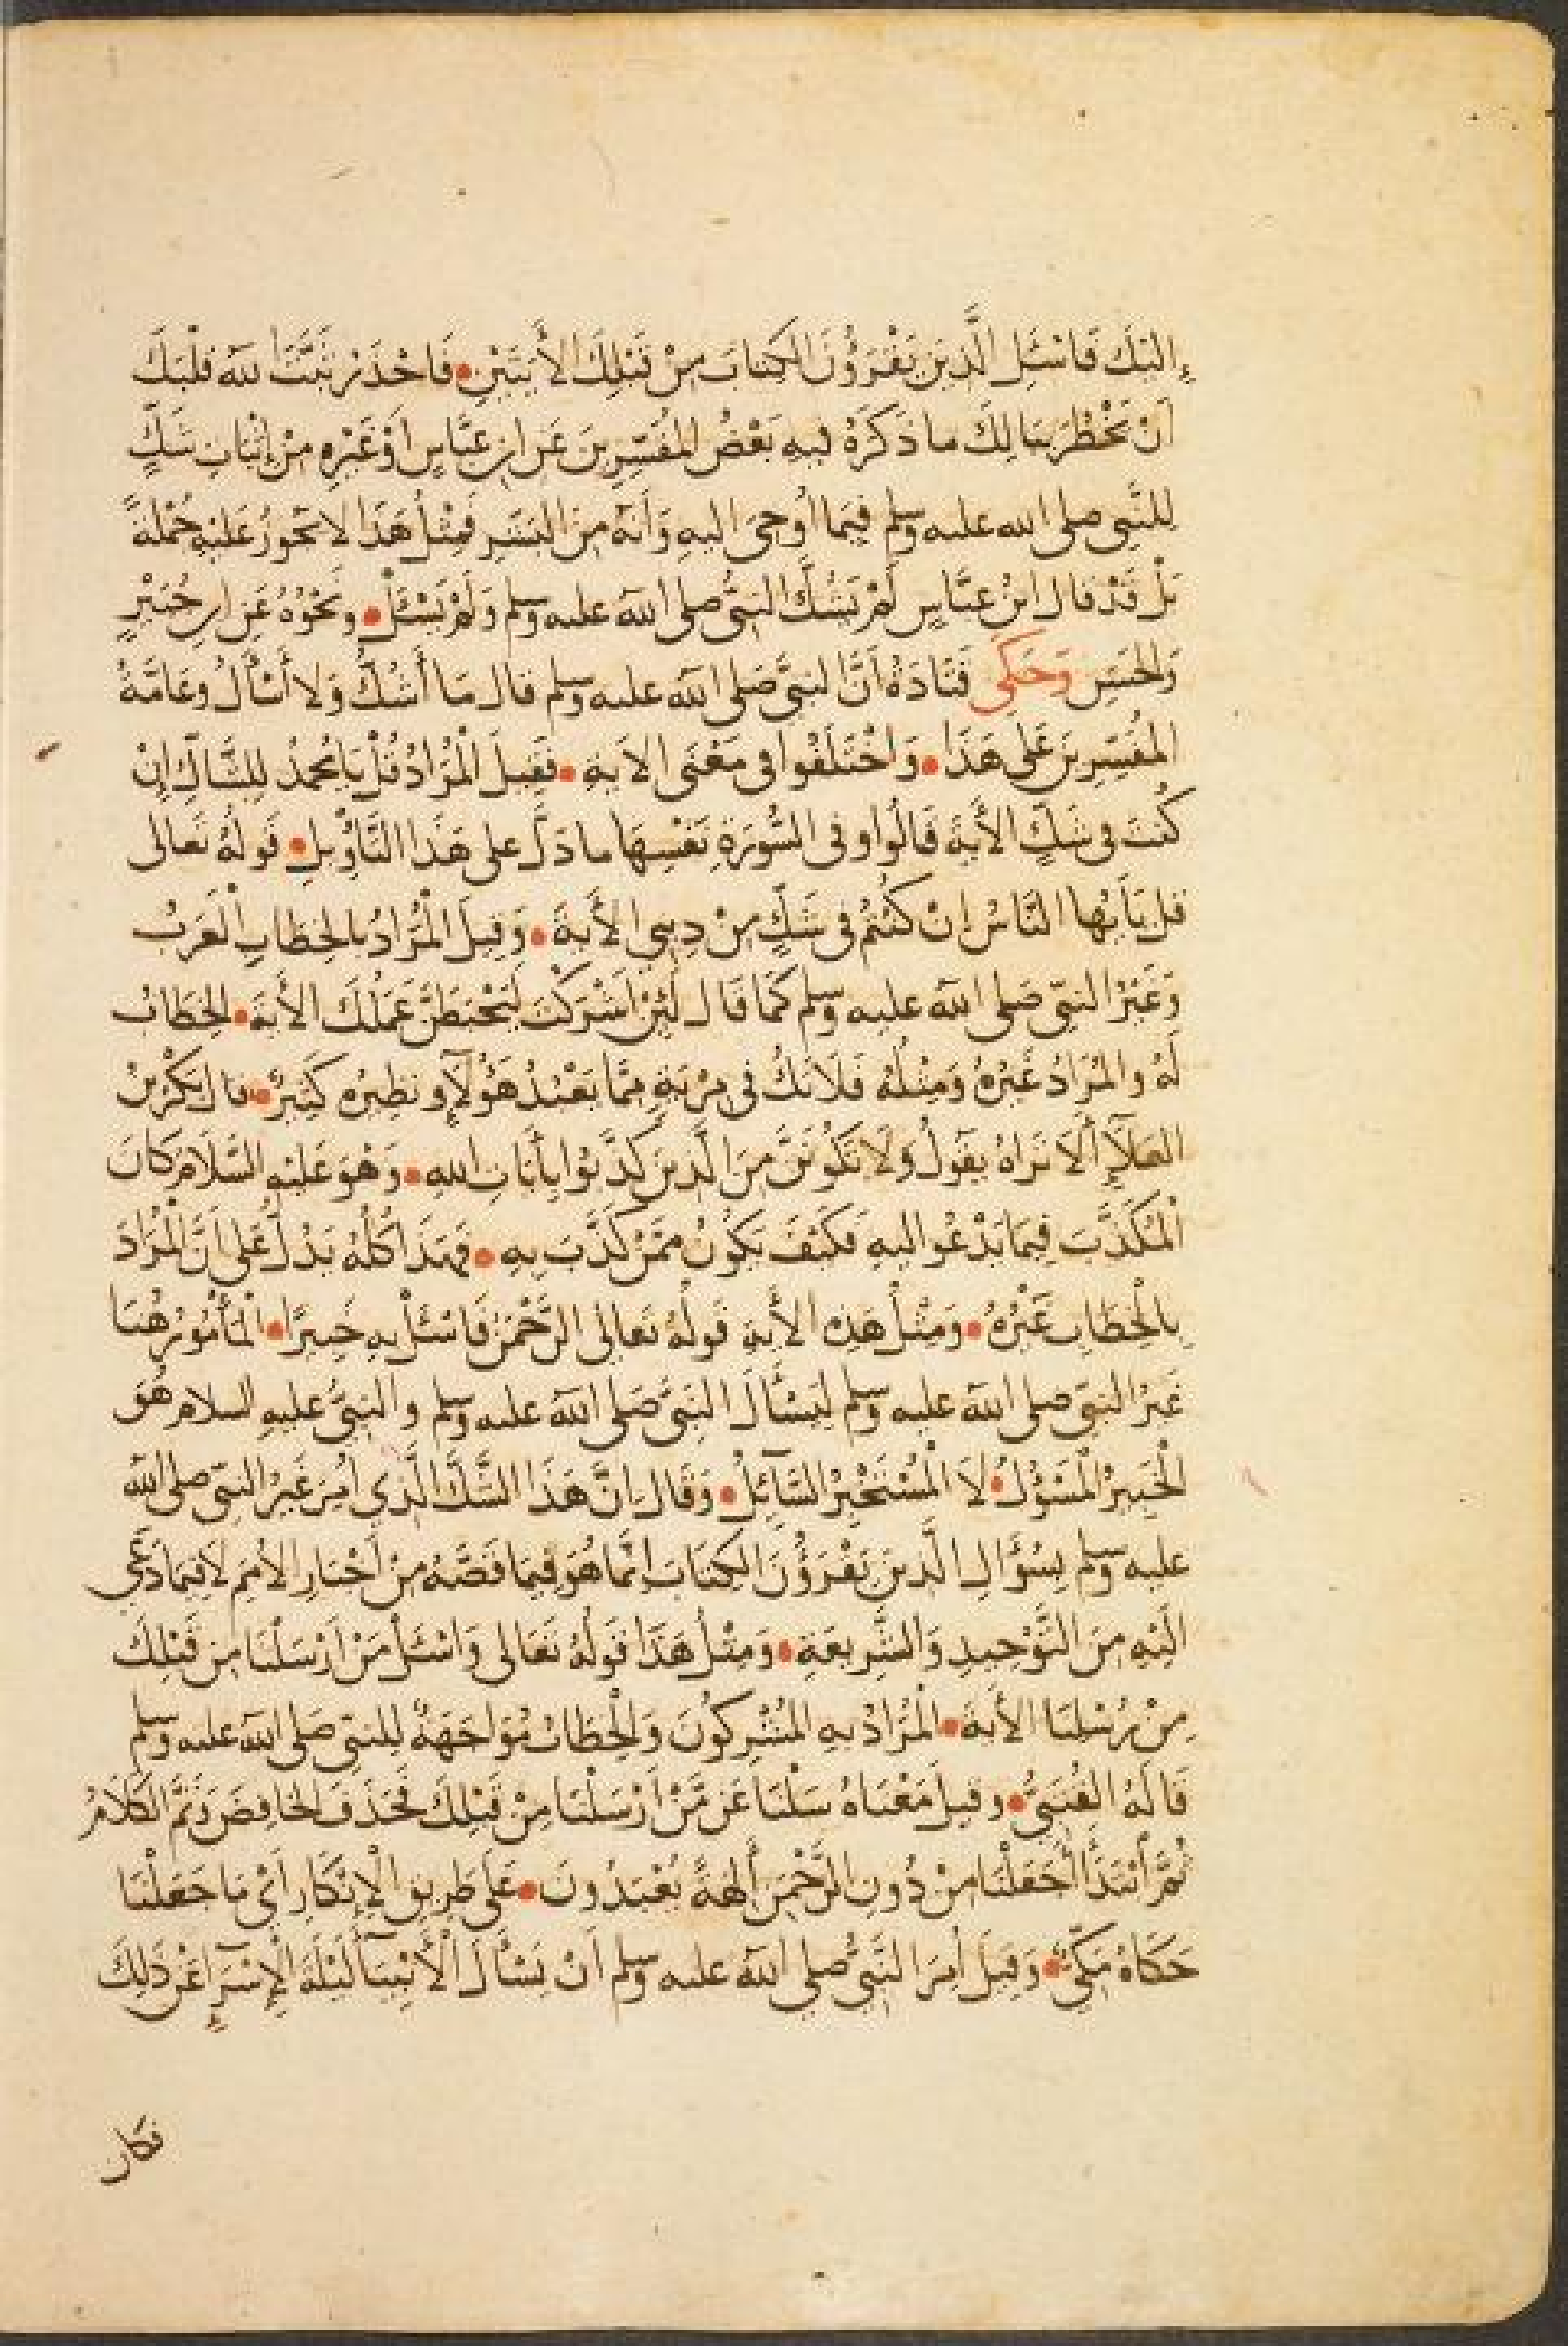 إِلَيْكَ فَاسْئَلِ الَّذِينَ يَقْرَؤُنَ الْكِتَابَ مِنْ قَبْلِكَ الْأٰيَتَيْنِ • فَاحْذَرْ ثَبَّتَ اللّٰه قَلْبَكَ
اَنْ يَخْطُرَ بِبَالِكَ ما ذَكَرَهُ فيهِ بَعْضُ المُفَسِّرِينَ عَنِ ابنِ عَبَّاسٍ اَوْ غَيْرِهِ مِنْ اِثْبَاتِ شَكٍّ
لِلنَّبِىِّ صلى الله عليه وسلم فِيمَا اُوحِىَ اليهِ وَاَنَّهُ مِنَ الْبَشَرِ فَمِثْلُ هَذَا لا يَجُوزُ عَلَيْهِ جُمْلَةً
بَلْ قَدْ قال ابْنُ عَبَّاسٍ لَمْ يَشُكَّ النَّبِىُّ صلى الله عليه وسلم وَلَمْ يَسْئَلْ • ونَحْوُهُ عَنِ ابنِ جُبَيْرٍ
وَالْحَسَنِ وَحَكَى قَتَادَةُ أَنَّ النبىَّ صَلى الله عليه وسلم قال مَا أَشُكُّ وَلا أَسْأَلُ وعَامَّةُ
المُفَسِّرِينَ عَلَى هَذَا • وَاخْتَلَفُوا فى مَعْنَى الاٰيةِ • فَقِيلَ الْمُرَادُ قُلْ يَا مُحمدُ لِلشَّاكِّ اِنْ
كُنْتَ فى شَكٍّ الْأٰيَةَ قَالُوا وفى السُّورَةِ نَفْسِهَا ما دَلَّ على هَذَا التَّأْوِيلِ • قَولُهُ تَعالى
قل يَاَيُّها النَّاسُ اِنْ كُنْتُمْ فى شَكٍّ مِنْ دِينِى الْأٰيةَ • وَقِيلَ الْمُرَادُ بالخِطَابِ الْعَرَبُ
وَغَيْرُ النبىِّ صَلى الله عليه وسلم كَمَا قَال لَئِنْ اَشْرَكْتَ لَيَحْبَطَنَّ عَمَلُكَ الْأٰيَةَ • الخِطَابُ
لَهُ والمُرَادُ غَيْرُهُ وَمِثْلُهُ فَلَا تَكُ فى مِرْيَةٍ مِمَّا يَعْبُدُ هَؤُلَآءِ ونَظِيرُه كَثِيرٌ • قال بَكْرُ بْنُ
العَلَآءِ أَلَا تَرَاهُ يقُولُ وَلَا تَكُونَنَّ مِنَ الَّذِينَ كَذَّبُوا بِأٰيَاتِ اللهِ • وَهْوَ عَلَيْهِ السَّلَامُ كَانَ
الْمُكَذَّبَ فِيمَا يَدْعُو اليهِ فَكَيْفَ يَكُونُ مِمَّنْ كَذَّبَ بِهِ • فهذا كُلُّهُ يَدُلُّ عَلَى اَنَّ الْمُرَادَ
بِالْخِطَابِ غَيْرُهُ • وَمِثْلُ هَذِهِ الأٰيةِ قَولُهُ تعالى الرَّحْمَنُ فَاسْئَلْ بِهِ خَبِيرًا • الْمَأْمُورُ هٰهُنَا
غَيْرُ النبىِّ صلى الله عليه وسلم لِيَسْأَلَ النَّبِىَّ صَلى الله عليه وسلم والنبىُّ عليهِ السلام هُوَ
الْخَبِيرُ الْمَسْؤُلُ • لَا الْمُسْتَخْبِرُ السَّآئِلُ • وَقَال اِنَّ هَذَا الشَّكَّ الَّذِى اُمِرَ غَيْرُ النبىِّ صلى الله
عليه وسلم بِسُؤَالِ الَّذينَ يَقْرَؤُنَ الكِتَابَ اِنَّمَا هُوَ فِيمَا قَصَّهُ مِنْ أَخْبَارِ الأُمَمِ لَا فِيمَا دَعَى
الَيْهِ مِنَ التَّوْحِيدِ وَالشَّرِيعَةِ • وَمِثْلُ هَذَا قَولُهُ تَعَالى وَاسْئَلْ مَنْ أَرْسَلْنَا مِنْ قَبْلِكَ
مِنْ رُسُلِنَا الْأٰيَةَ • الْمُرَادُ بِهِ المُشْرِكُونَ وَالْخِطَابُ مُوَاجَهَةٌ لِلنبىِّ صَلى الله عليه وسلم
قَالَهُ الْقُتَبِىُّ • وقيل مَعْنَاهُ سَلْنَا عَنْ مَنْ أَرْسَلْنَا مِنْ قَبْلِكَ فَحَذَفَ الْخَافِضَ وَتَمَّ الْكَلَامُ
ثُمَّ ابْتَدَأَ أَجَعَلْنَا مِنْ دُونِ الرَّحْمٰنِ أٰلِهَةً يُعْبَدُونَ • عَلَى طَرِيقِ الْاِنْكَارِ اَىْ مَا جَعَلْنَا
حَكَاهُ مَكِّىٌّ • وَقِيلَ أُمِرَ النَّبِىُّ صلى الله عليه وسلم اَنْ يَسْأَلَ الْأَنْبِيَآءَ لَيْلَةَ الْاِسْرَآءِ عَنْ ذَلِكَ
فكان